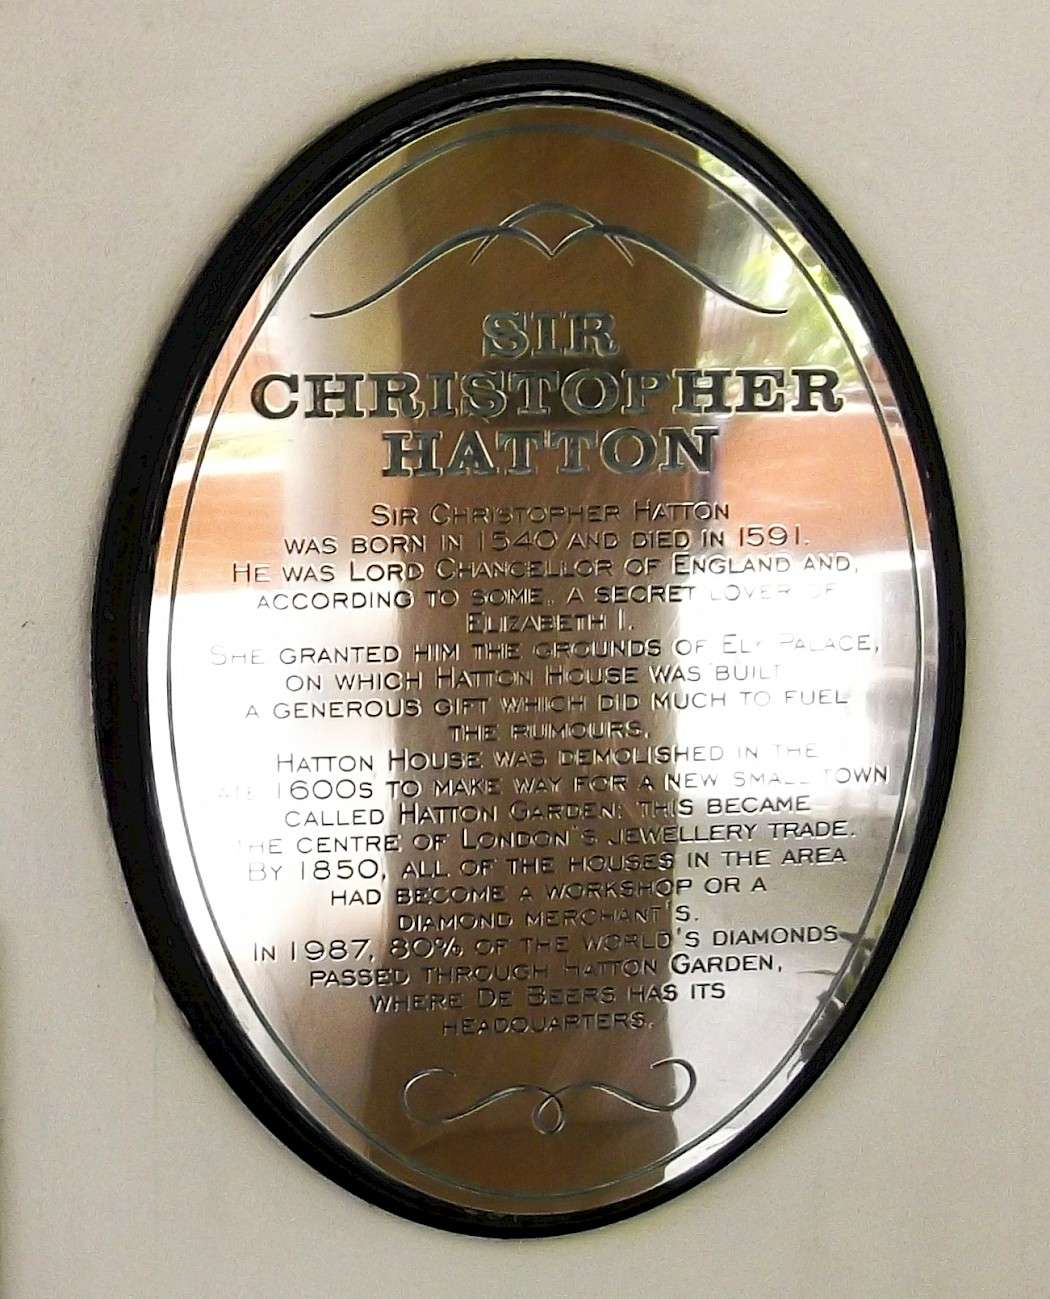 SIR
CHRISTOPHER
HATTON
SIR CHRISTOPHER HATTON
WAS BORN IN 1540 AND DIED IN 1591.
HE WAS LORD CHANCELLOR OF ENGLAND AND,
ACCORDING TO SOME, A SECRET LOVER OF
ELIZABETH I.
SHE GRANTED HIM THE GROUNDS OF ELY PALACE,
ON WHICH HATTON HOUSE WAS BUILT
A GENEROUS GIFT WHICH DID MUCH TO FUEL
THE RUMOURS.
HATTON HOUSE WAS DEMOLISHED IN THE
LATE 1600S TO MAKE WAY FOR A NEW SMALL TOWN
CALLED HATTON GARDEN. THIS BECAME
THE CENTRE OF LONDON'S JEWELLERY TRADE.
BY 1850, ALL OF THE HOUSES IN THE AREA
HAD BECOME A WORKSHOP OR A
DIAMOND MERCHANT'S.
IN 1987, 80% OF THE WORLD'S DIAMONDS
PASSED THROUGH HATTON GARDEN,
WHERE DE BEERS HAS ITS
HEADQUARTERS.